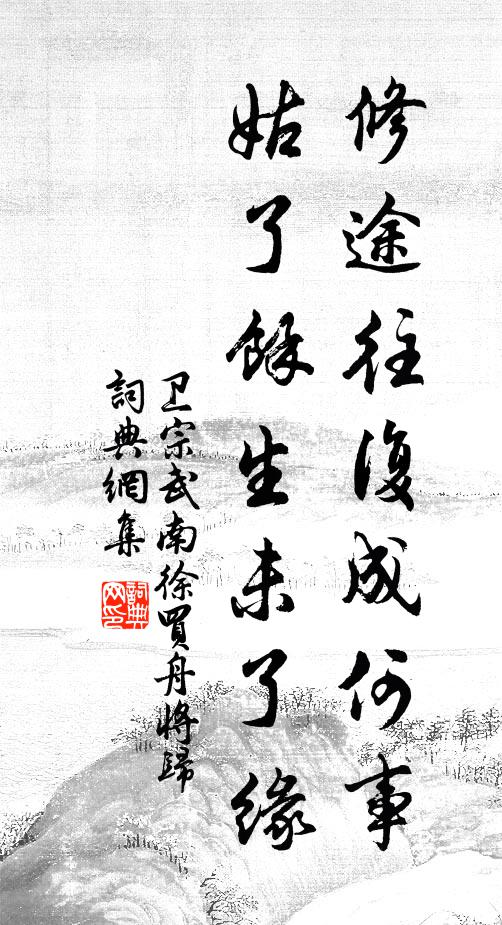 修途往復成何事
姑了餘生未了緣
卫宗武南徐買舟將歸
詞典網集
詞典
网印